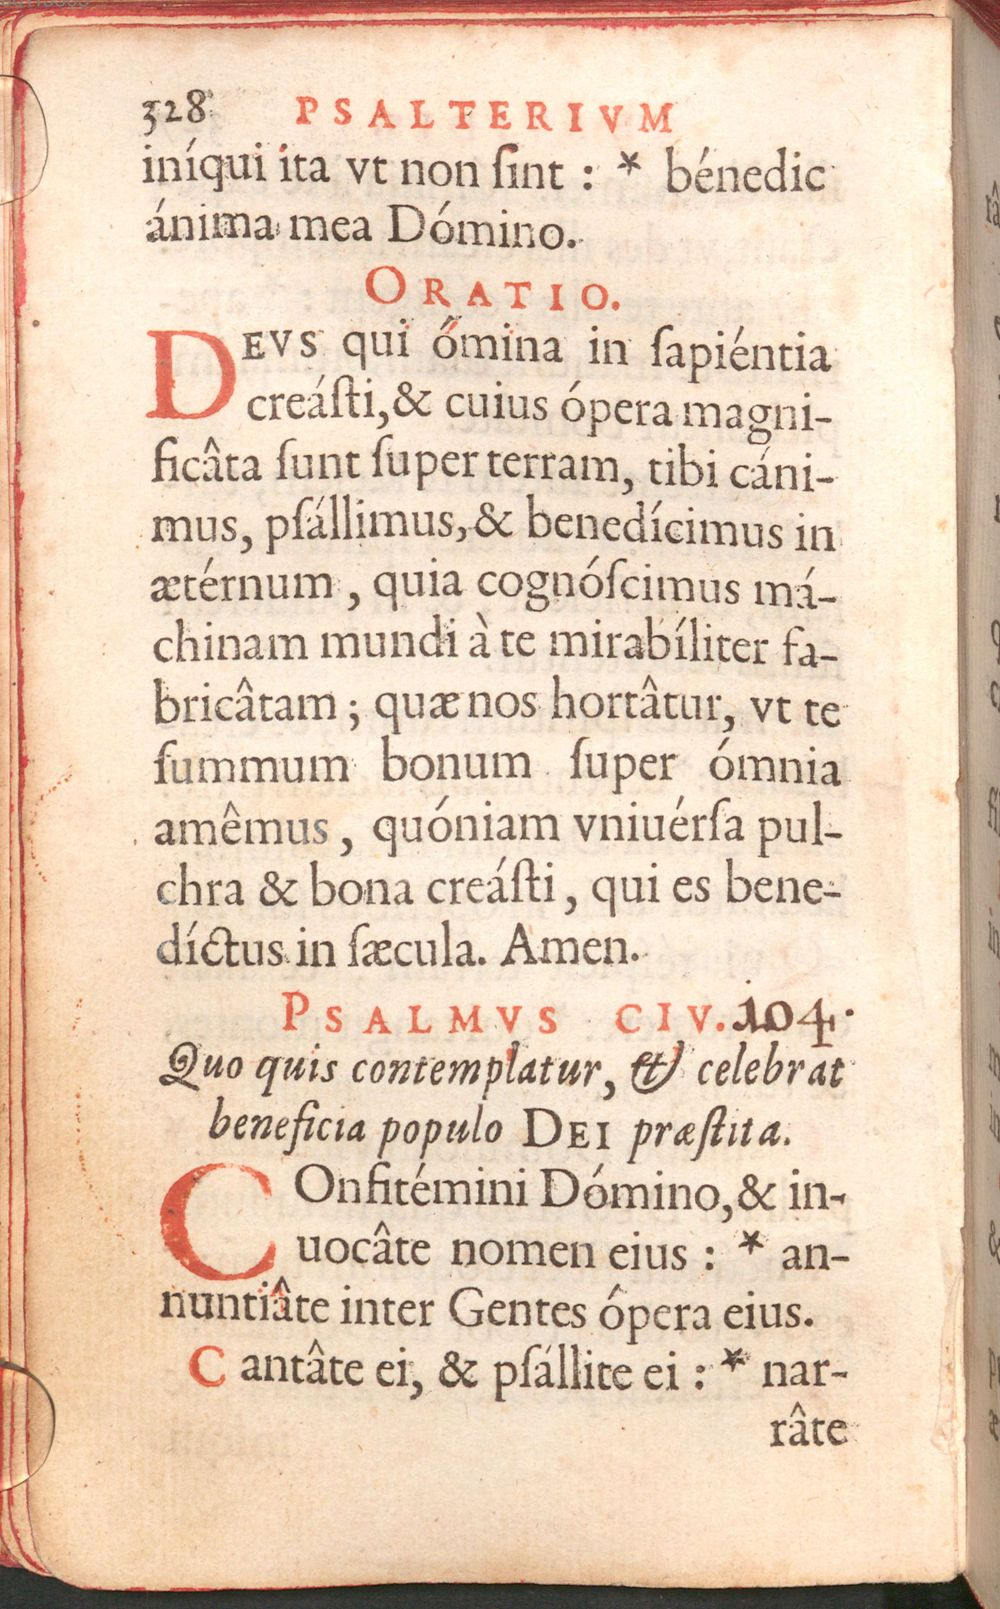 328 PSALTERIVM
iníqui ita vt non ſint : * bénedic
ánima mea Dómino.
ORATIO.
DEVS qui ómina in ſapiéntia
creáſti, & cuius ópera magni-
ficâta ſunt ſuper terram, tibi cáni-
mus, pſállimus, & benedícimus in
ætérnum , quia cognóſcimus má-
chinam mundi à te mirabíliter fa-
bricâtam ; quæ nos hortâtur, vt te
ſummum bonum ſuper ómnia
amêmus , quóniam vniuérſa pul-
chra & bona creáſti , qui es bene-
díctus in ſæcula. Amen.
PSALMVS CIV. 104.
Quo quis contemplatur, & celebrat
beneficia populo DEI præſtita.
COnfitémini Dómino, & in-
uocâte nomen eius : * an-
nuntiâte inter Gentes ópera eius.
Cantâte ei, & pſállite ei : * nar-
râte